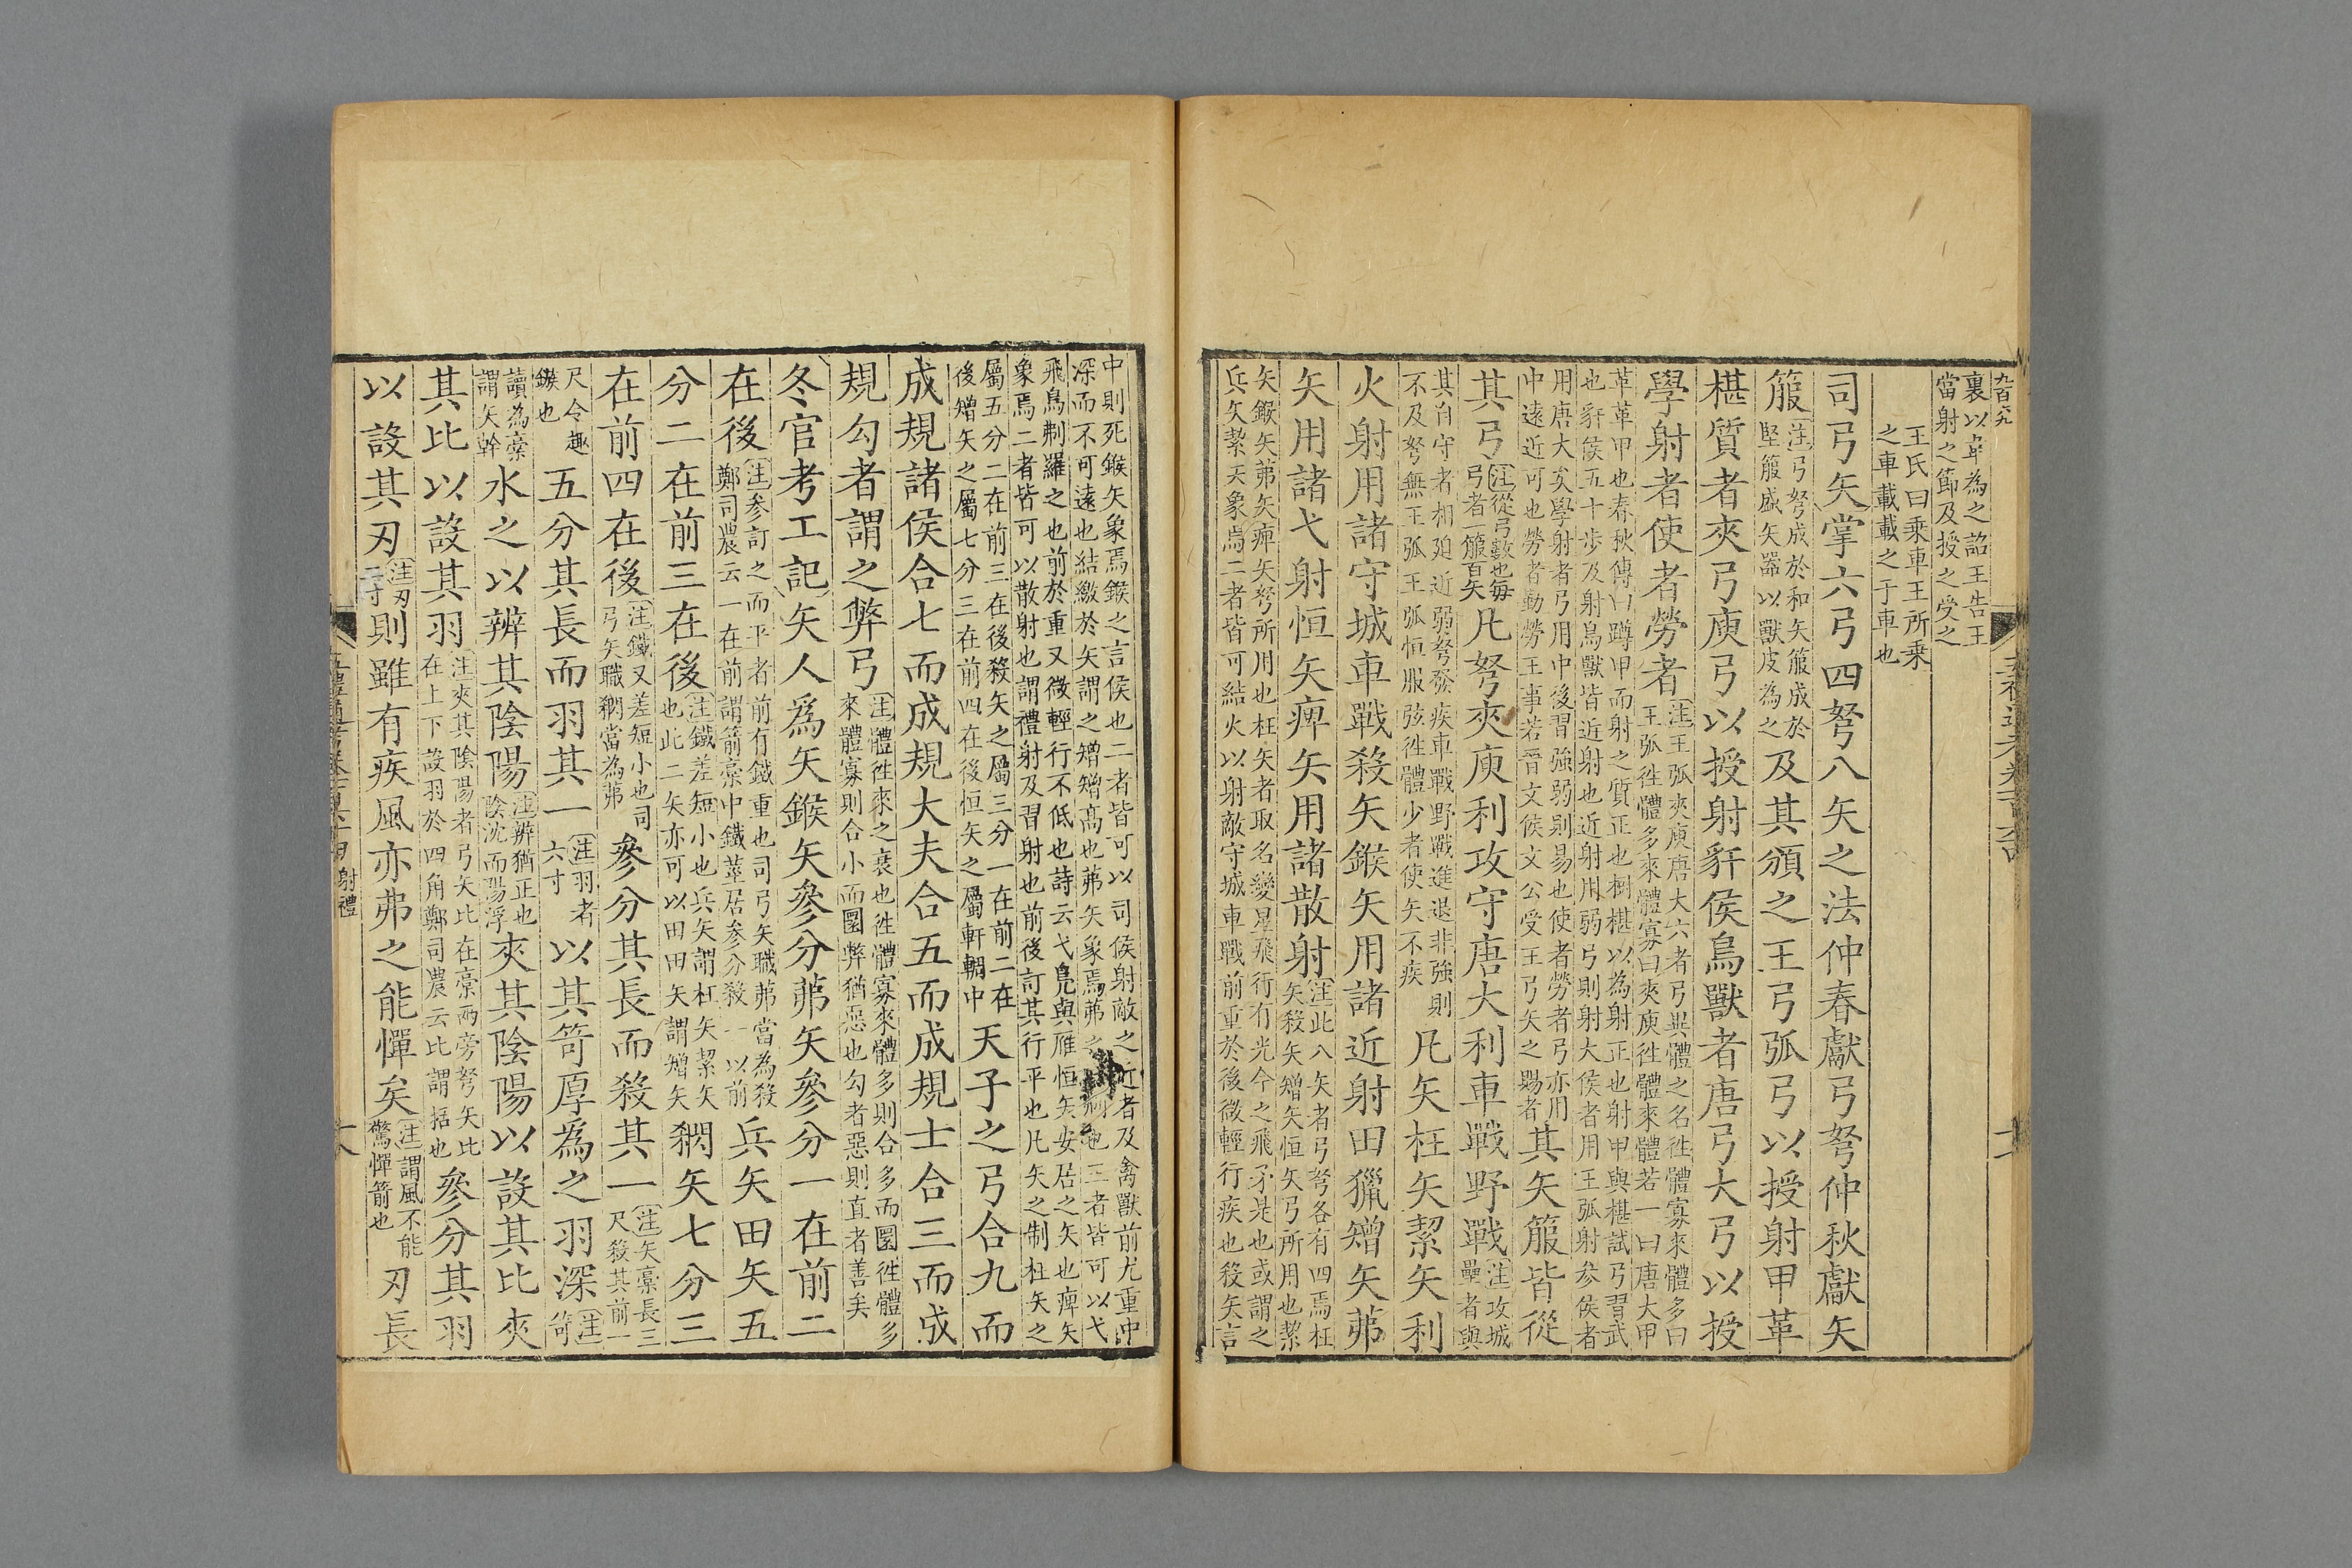 裏以韋為之詔王告王
當射之節及授之受之
王氏曰乘車王所乘
之車載載之于車也
司弓矢掌六弓四弩八矢之法仲春獻弓弩仲秋獻矢
箙注弓弩成於和矢箙成於
堅箙盛矢器以獸皮為之及其頒之王弓弧弓以授射甲革
椹質者夾弓庾弓以授射豻侯鳥獸者唐弓大弓以授
學射者使者勞者注王弧夾庾唐大六者弓異體之名徃體寡來體多曰
王弧徃體多來體寡曰夾庾徃體來體若一曰唐大甲
革革甲也春秋傳曰蹲甲而射之質正也樹椹以為射正也射甲與椹試弓習武
也豻侯五十步及射鳥獸皆近射也近射用弱弓則射大侯者用王弧射參侯者
用唐大矣學射者弓用中後習強弱則易也使者勞者弓亦用
中遠近可也勞者勤勞王事若晉文侯文公受王弓矢之賜者其矢箙皆從
其弓注從弓數也每
弓者一箙百矢凡弩夾庾利攻守唐大利車戰野戰注攻城
壘者與
其自守者相廹近弱弩發疾車戰野戰進退非強則
不及弩無王弧王弧恒服弦徃體少者使矢不疾凡矢枉矢絜矢利
火射用諸守城車戰殺矢鍭矢用諸近射田獵矰矢茀
矢用諸弋射恒矢痺矢用諸散射注此八矢者弓弩各有四焉枉
矢殺矢矰矢恒矢弓所用也絜
矢鍭矢茀矢痺矢弩所用也枉矢者取名變星飛行有光今之飛矛是也或謂之
兵矢絜矢象焉二者皆可結火以射敵守城車戰前重於後微輕行疾也殺矢言
中則死鍭矢象焉鍭之言侯也二者皆可以司侯射敵之近者及禽獸前尤重中
深而不可遠也結繳於矢謂之矰矰高也茀矢象焉茀之也二者皆可以弋
飛鳥刜羅之也前於重又微輕行不低也詩云弋鳧與雁恒矢安居之矢也痺矢
象焉二者皆可以散射也謂禮射及習射也前後訂其行平也凡矢之制枉矢之
屬五分二在前三在後殺矢之屬三分一在前二在
後矰矢之屬七分三在前四在後恒矢之屬軒輖中天子之弓合九而
成規諸侯合七而成規大夫合五而成規士合三而成
規勾者謂之弊弓注體徃來之衰也徃體寡來體多則合多而圜徃體多
來體寡則合小而圜弊猶惡也勾者惡則直者善矣
冬官考工記矢人為矢鍭矢參分茀矢參分一在前二
在後注參訂之而平者前有鐵重也司弓矢職茀當為殺
鄭司農云一在前謂箭槀中鐵莖居參分殺一以前兵矢田矢五
分二在前三在後注鐵差短小也兵矢謂枉矢絜矢
也此二矢亦可以田田矢謂矰矢殺矢七分三
在前四在後注鐵又差短小也司
弓矢職殺當為茀參分其長而殺其一注矢槀長三
尺殺其前一
尺令趣
鏃也五分其長而羽其一注羽者
六寸以其笴厚為之羽深注笴
讀為槀
謂矢幹水之以辨其陰陽注辨猶正也
陰沈而陽浮夾其陰陽以設其比夾
其比以設其羽注夾其陰陽者弓矢比在槀兩旁弩矢比
在上下設羽於四角鄭司農云比謂括也參分其羽
以設其刃注刃
二寸則雖有疾風亦弗之能憚矣注謂風不能
驚憚箭也刃長
射禮